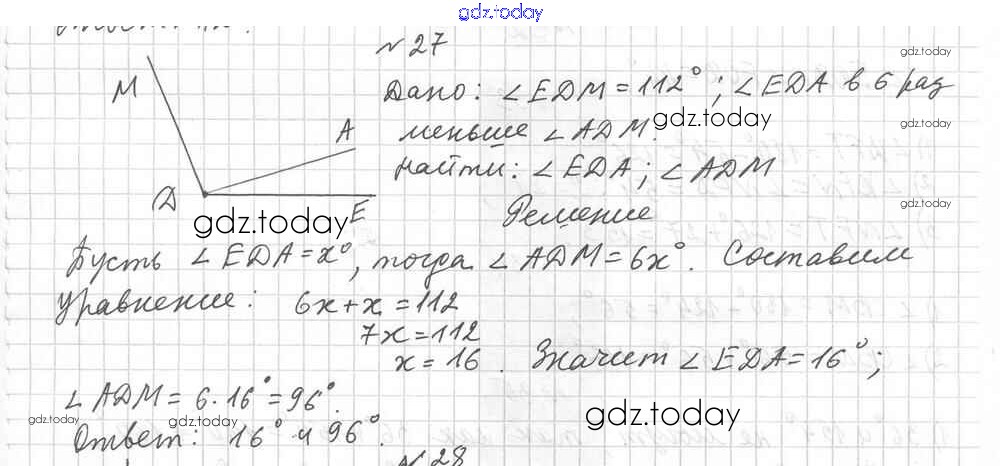 gdz.today
№ 27
gdz.today
M
Дано: ∠EDM = 112°; ∠EDA в 6 раз
gdz.today
A
меньше ∠ADM.
gdz.today
Найти: ∠EDA; ∠ADM
D
E
gdz.today
gdz.today
Решение
Пусть ∠EDA = x°, тогда ∠ADM = 6x°. Составим
уравнение: 6x + x = 112
7x = 112
x = 16. Значит ∠EDA = 16°;
∠ADM = 6 · 16° = 96°.
gdz.today
gdz.today
gdz.today
Ответ: 16° и 96°.
№ 28